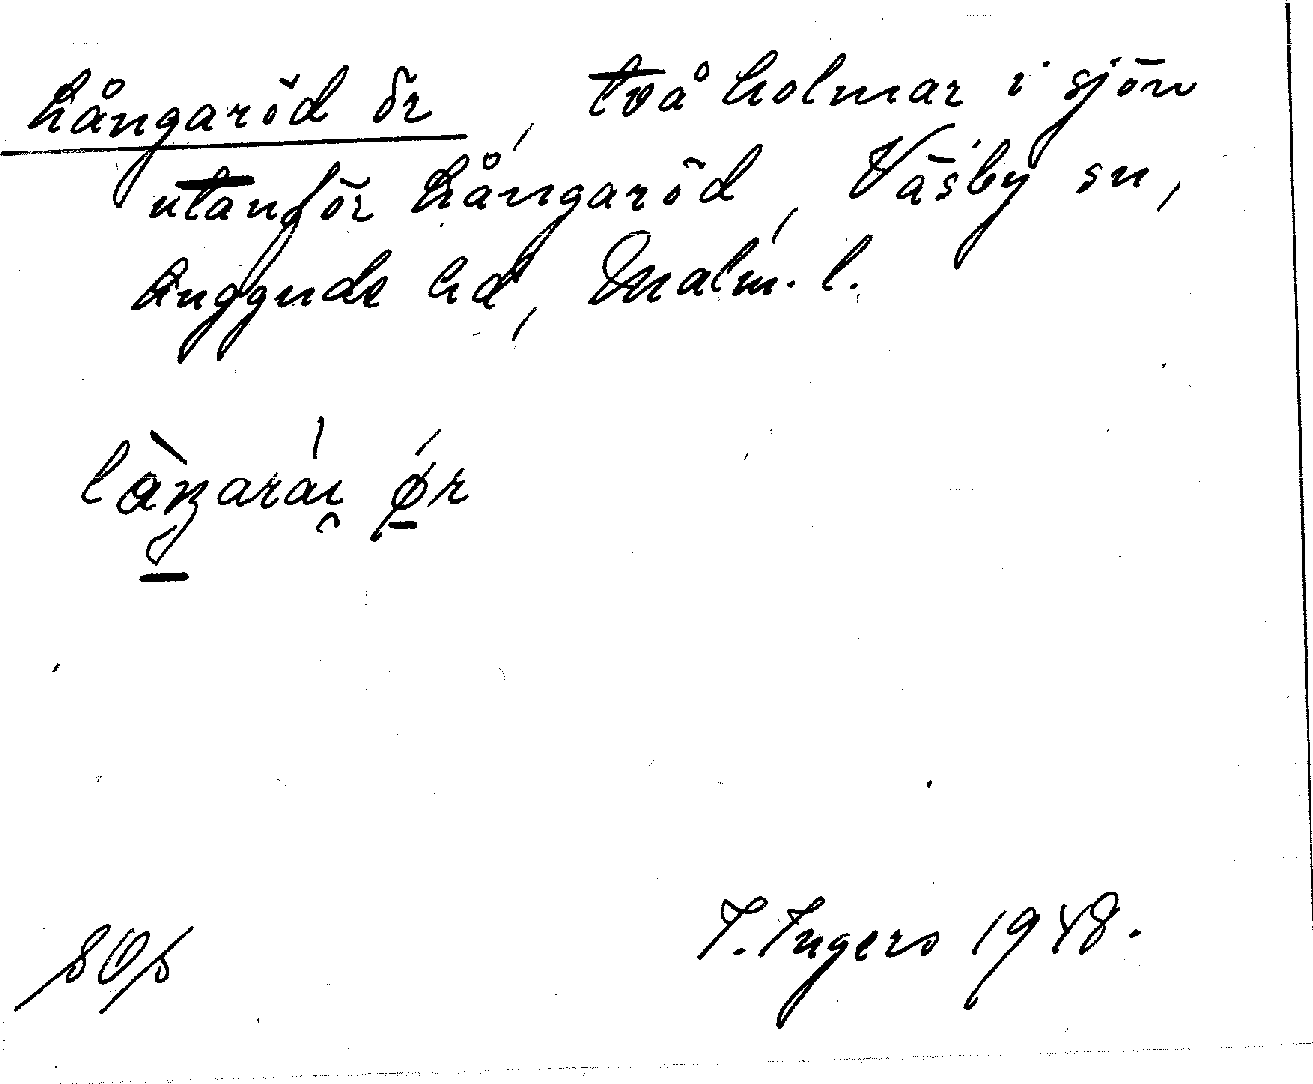 Långaröd ör, två holmar i sjön
utanför Långaröd, Väsby sn,
Luggude hd, Malm. l.
I. Ingers 1948.